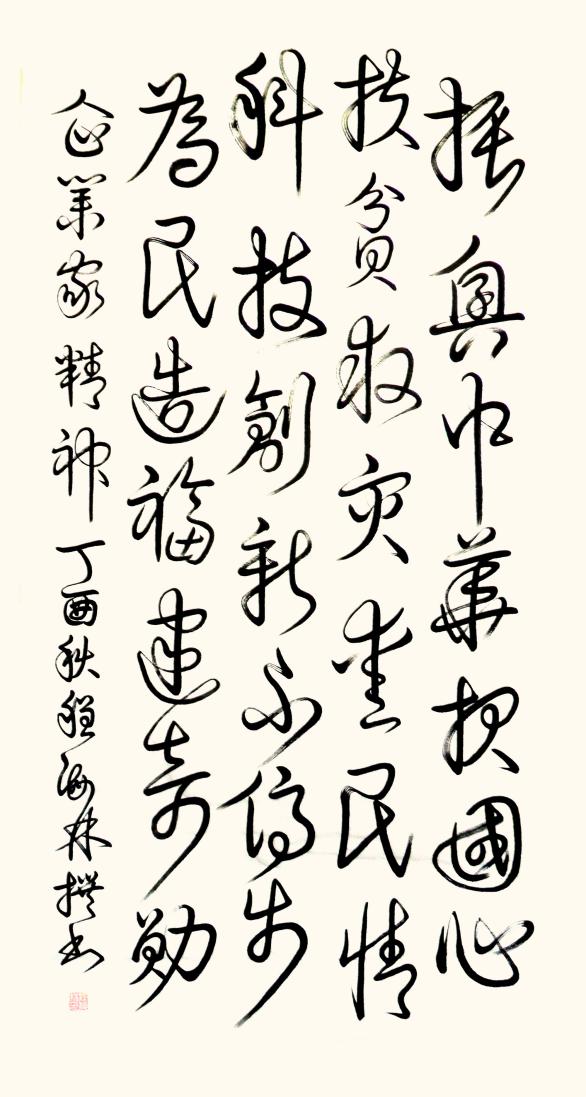 振興中華报國心
扶貧救灾民情
科技創新不停步
為民造福建奇勛
企業家精神 丁酉秋海林撰书